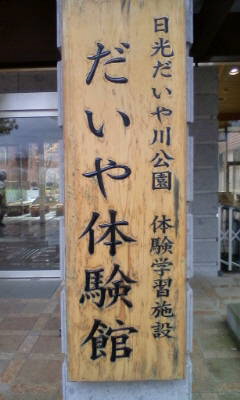 日光だいや川公園　体験学習施設
だいや体験館